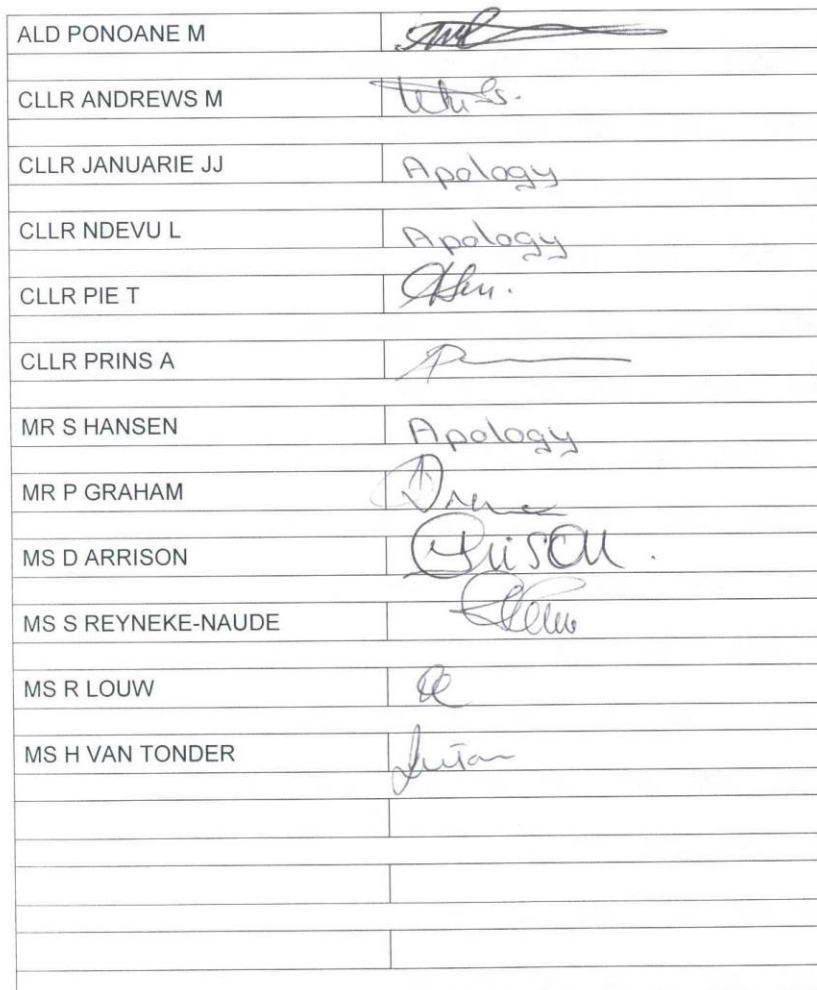 ALD PONOANE M
CLLR ANDREWS M
CLLR JANUARIE JJ Apology
CLLR NDEVU L Apology
CLLR PIE T
CLLR PRINS A
MR S HANSEN Apology
MR P GRAHAM
MS D ARRISON
MS S REYNEKE-NAUDE
MS R LOUW
MS H VAN TONDER